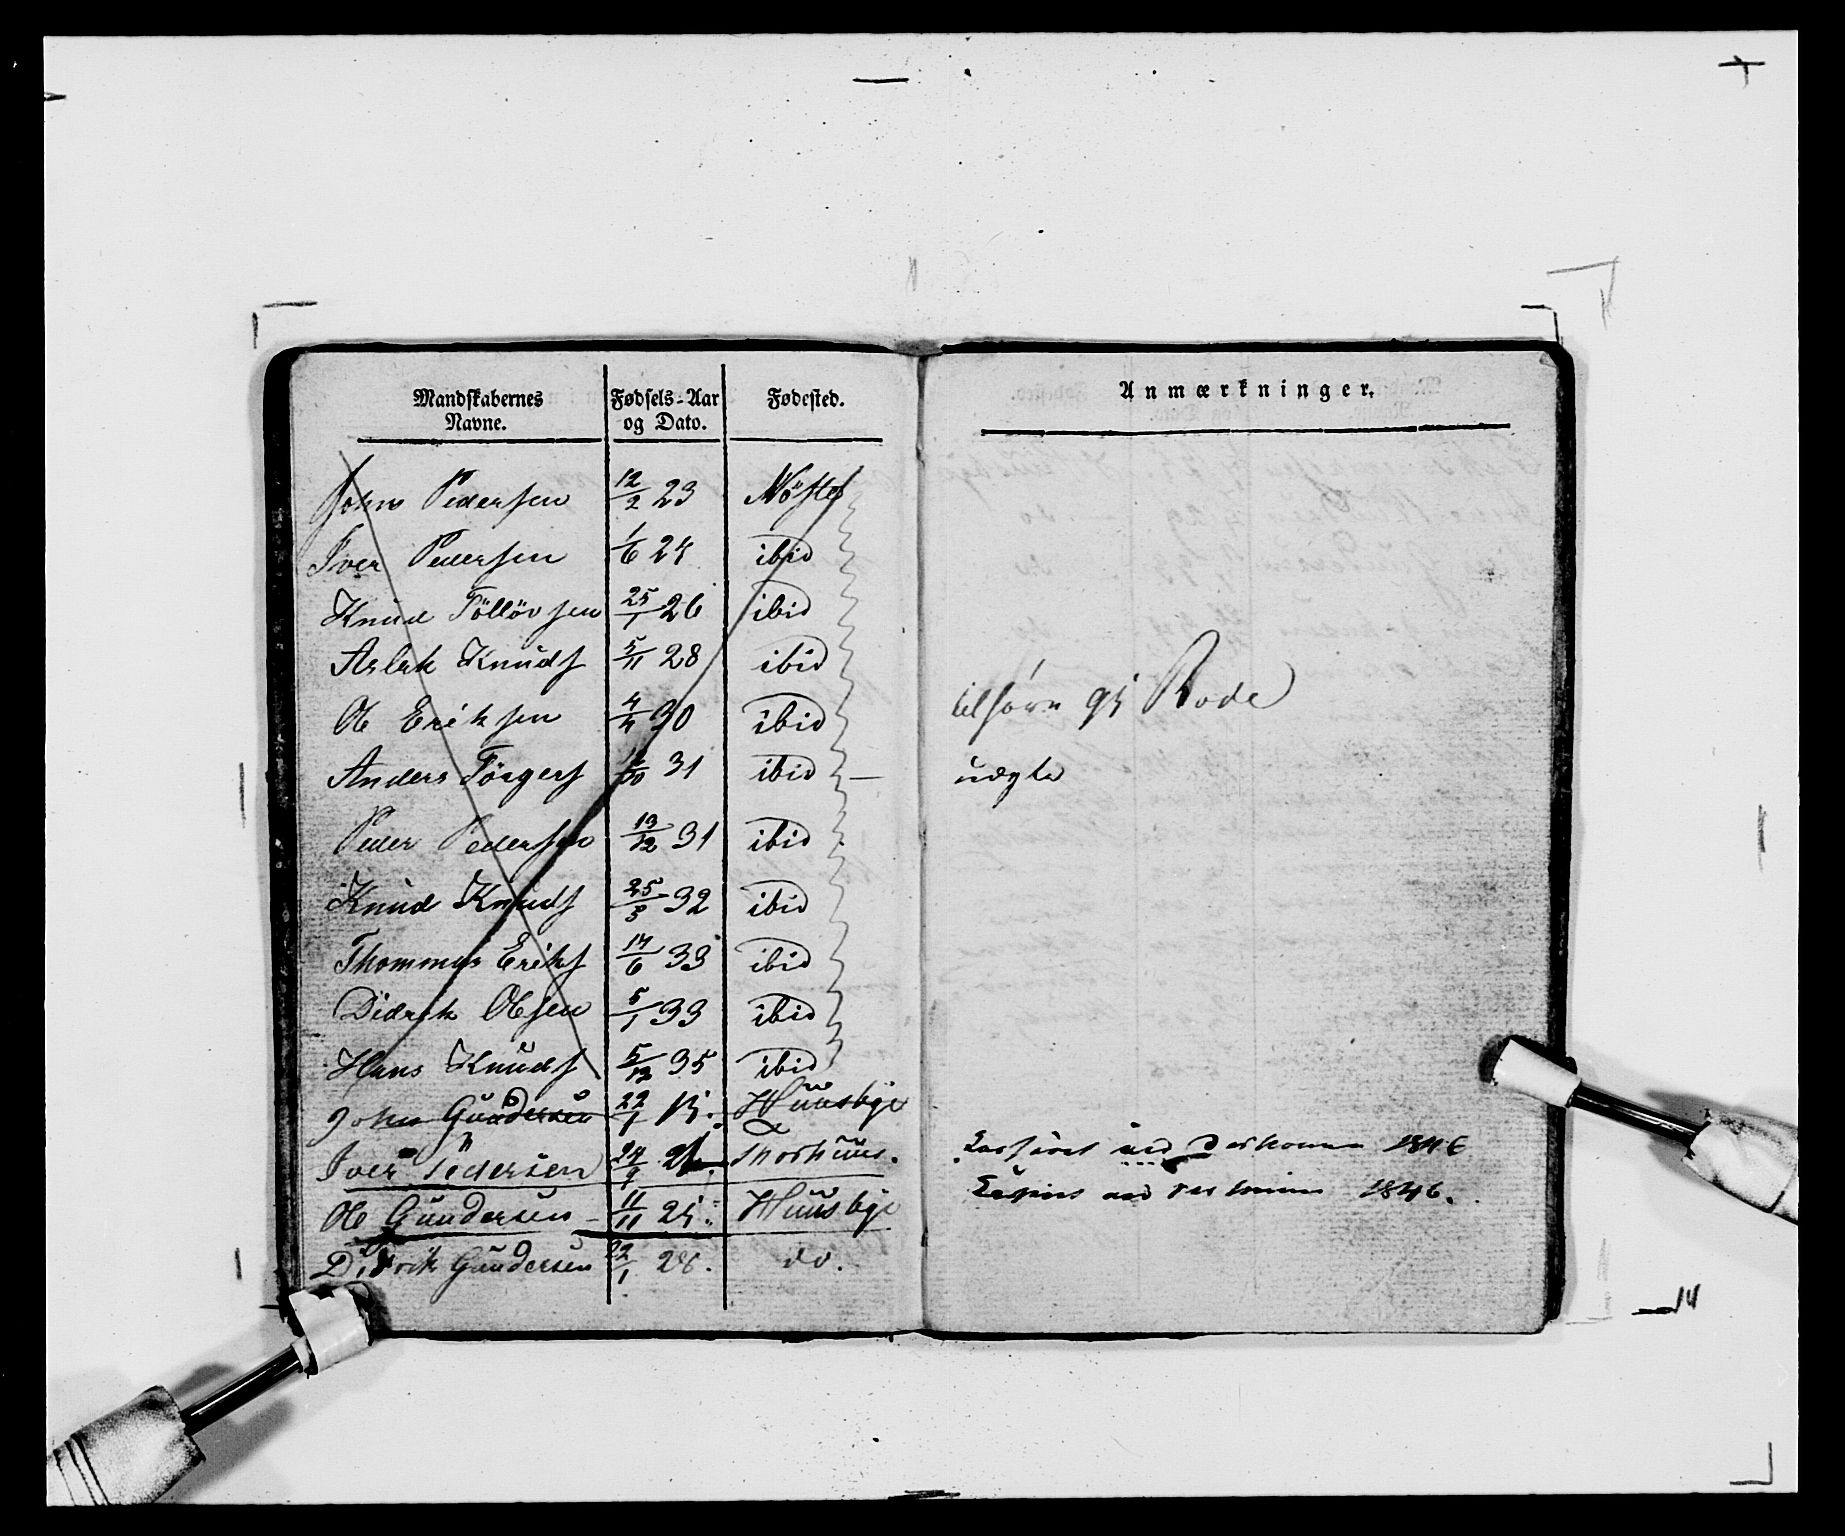 Mandskabernes Navne. Fødsels-Aar og Dato. Fødested.
John Pedersen 12/2 23 Nöste
Iver Pedersen 1/6 24 ibid
Knud Töllövsen 25/1 26 ibid
Aslak Knuds 5/11 28 ibid
Ole Eriksen 4/4 30 ibid
Anders Törgers 31 ibid —
Peder Pedersen 13/12 31 ibid
Knud Knuds 25/3 32 ibid
Thommas Eriks 14/6 33 ibid
Didrik Olsen 5/1 33 ibid
Hans Knuds 5/12 35 ibid
John Gundersen 22/1 Huusbye
Iver Pedersen 24/9 Thorhuus.
Ole Gundersen 11/11 25 Huusbye
Didrik Gundersen 22/1 28. do.
Anmærkninger.
Rode
udgte
1846
1846.
14